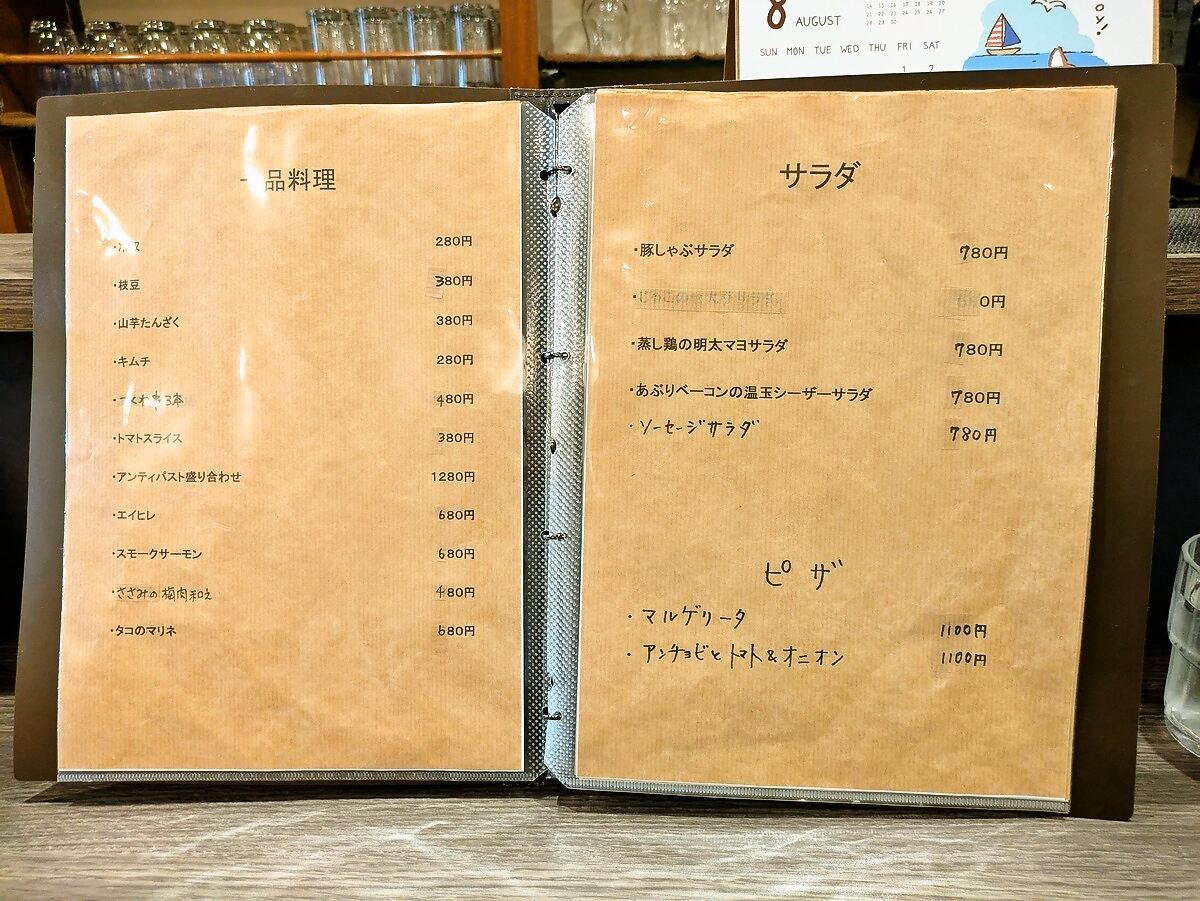 8 AUGUST
SUN MON TUE WED THU FRI SAT
1 2
一品料理
280円
・枝豆 380円
・山芋たんざく 380円
・キムチ 280円
・つくね串3本 480円
・トマトスライス 380円
・アンティパスト盛り合わせ 1280円
・エイヒレ 680円
・スモークサーモン 680円
・ささみの梅肉和え 480円
・タコのマリネ 680円
サラダ
・豚しゃぶサラダ 780円
・蒸し鶏の明太マヨサラダ 780円
・あぶりベーコンの温玉シーザーサラダ 780円
・ソーセージサラダ 780円
ピザ
・マルゲリータ 1100円
・アンチョビとトマト&オニオン 1100円